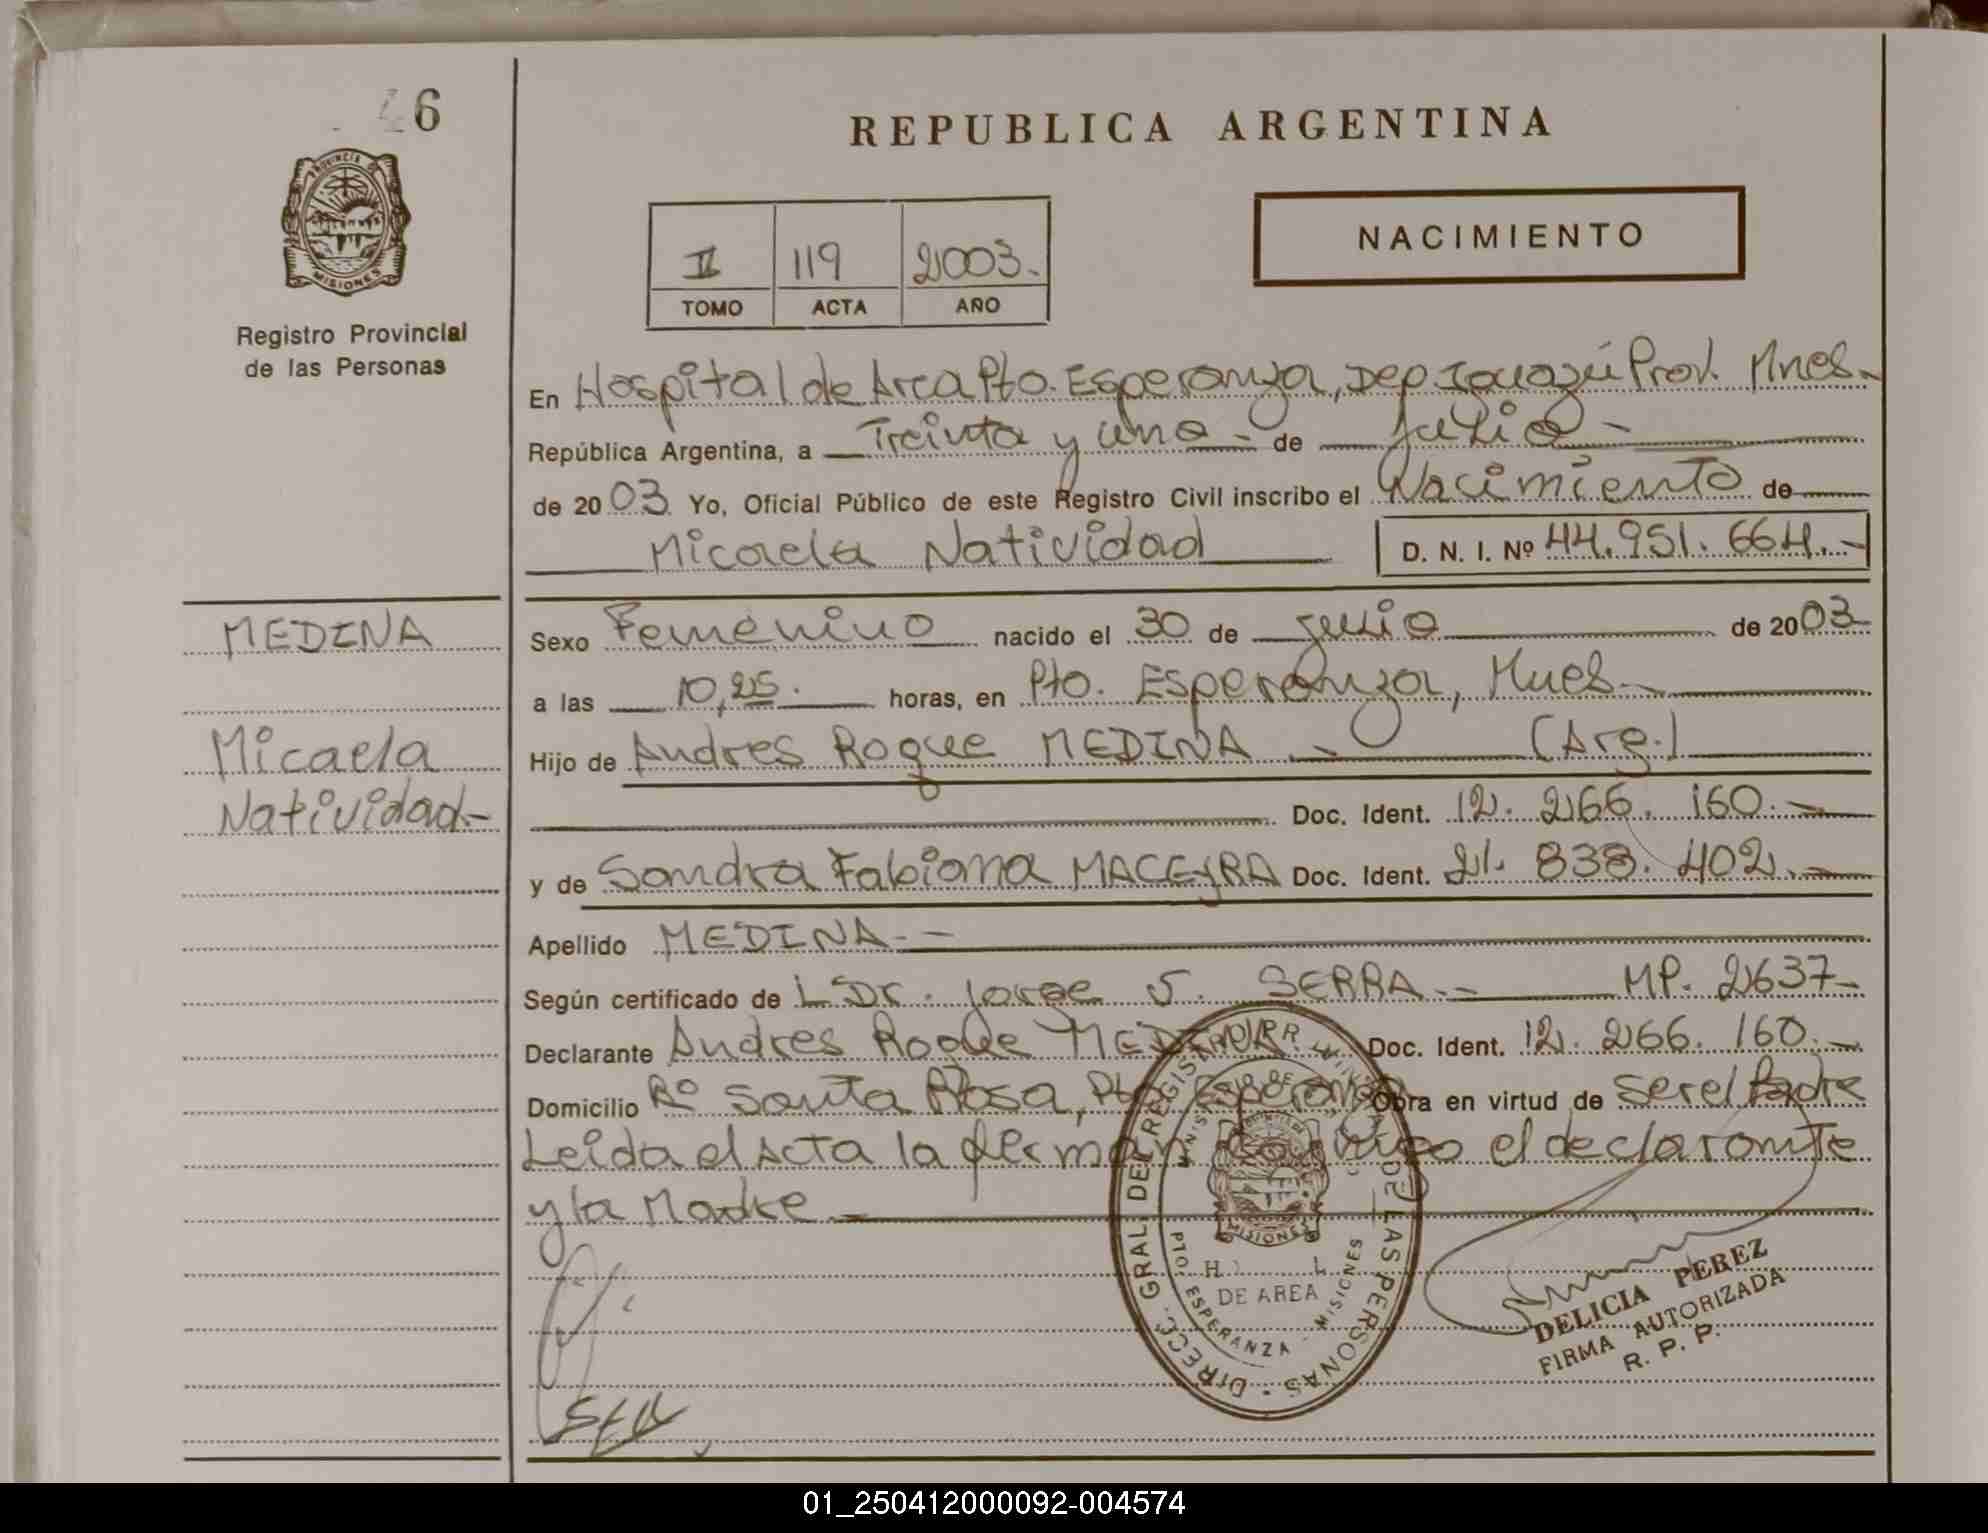 46
REPUBLICA ARGENTINA
NACIMIENTO
II 119 2003.-
TOMO ACTA AÑO
PROVINCIA DE
MISIONES
Registro Provincial
de las Personas
En Hospital de Area Pto. Esperanza, Dep Iguazú Prov. Mnes-
República Argentina, a Treinta y uno - de Julio -
de 2003 Yo, Oficial Público de este Registro Civil inscribo el Nacimiento de
Micaela Natividad D. N. I. Nº 44.951.664.-
MEDINA
Micaela
Natividad-
Sexo Femenino nacido el 30 de julio de 2003
a las 10,25. horas, en Pto. Esperanza, Mnes-
Hijo de Andres Roque MEDINA - (Arg.)
Doc. Ident. 12. 266. 160.-
y de Sandra Fabiana MACEYRA Doc. Ident. 21. 838. 402.-
Apellido MEDINA.-
Según certificado de L Dr. Jorge S. SERRA.- MP. 2637-
Declarante Andres Roque MEDINA Doc. Ident. 12. 266. 160.-
Domicilio Rº Santa Rosa, Pto. Esperanza Obra en virtud de ser el Padre
Leida el Acta la firman conmigo el declarante
y la Madre.-
DIRECC. GRAL. DEL REGISTRO DE LAS PERSONAS
PTO. ESPERANZA - MISIONES
MISIONES
DE AREA
DELICIA PEREZ
FIRMA AUTORIZADA
R. P. P.
01_250412000092-004574